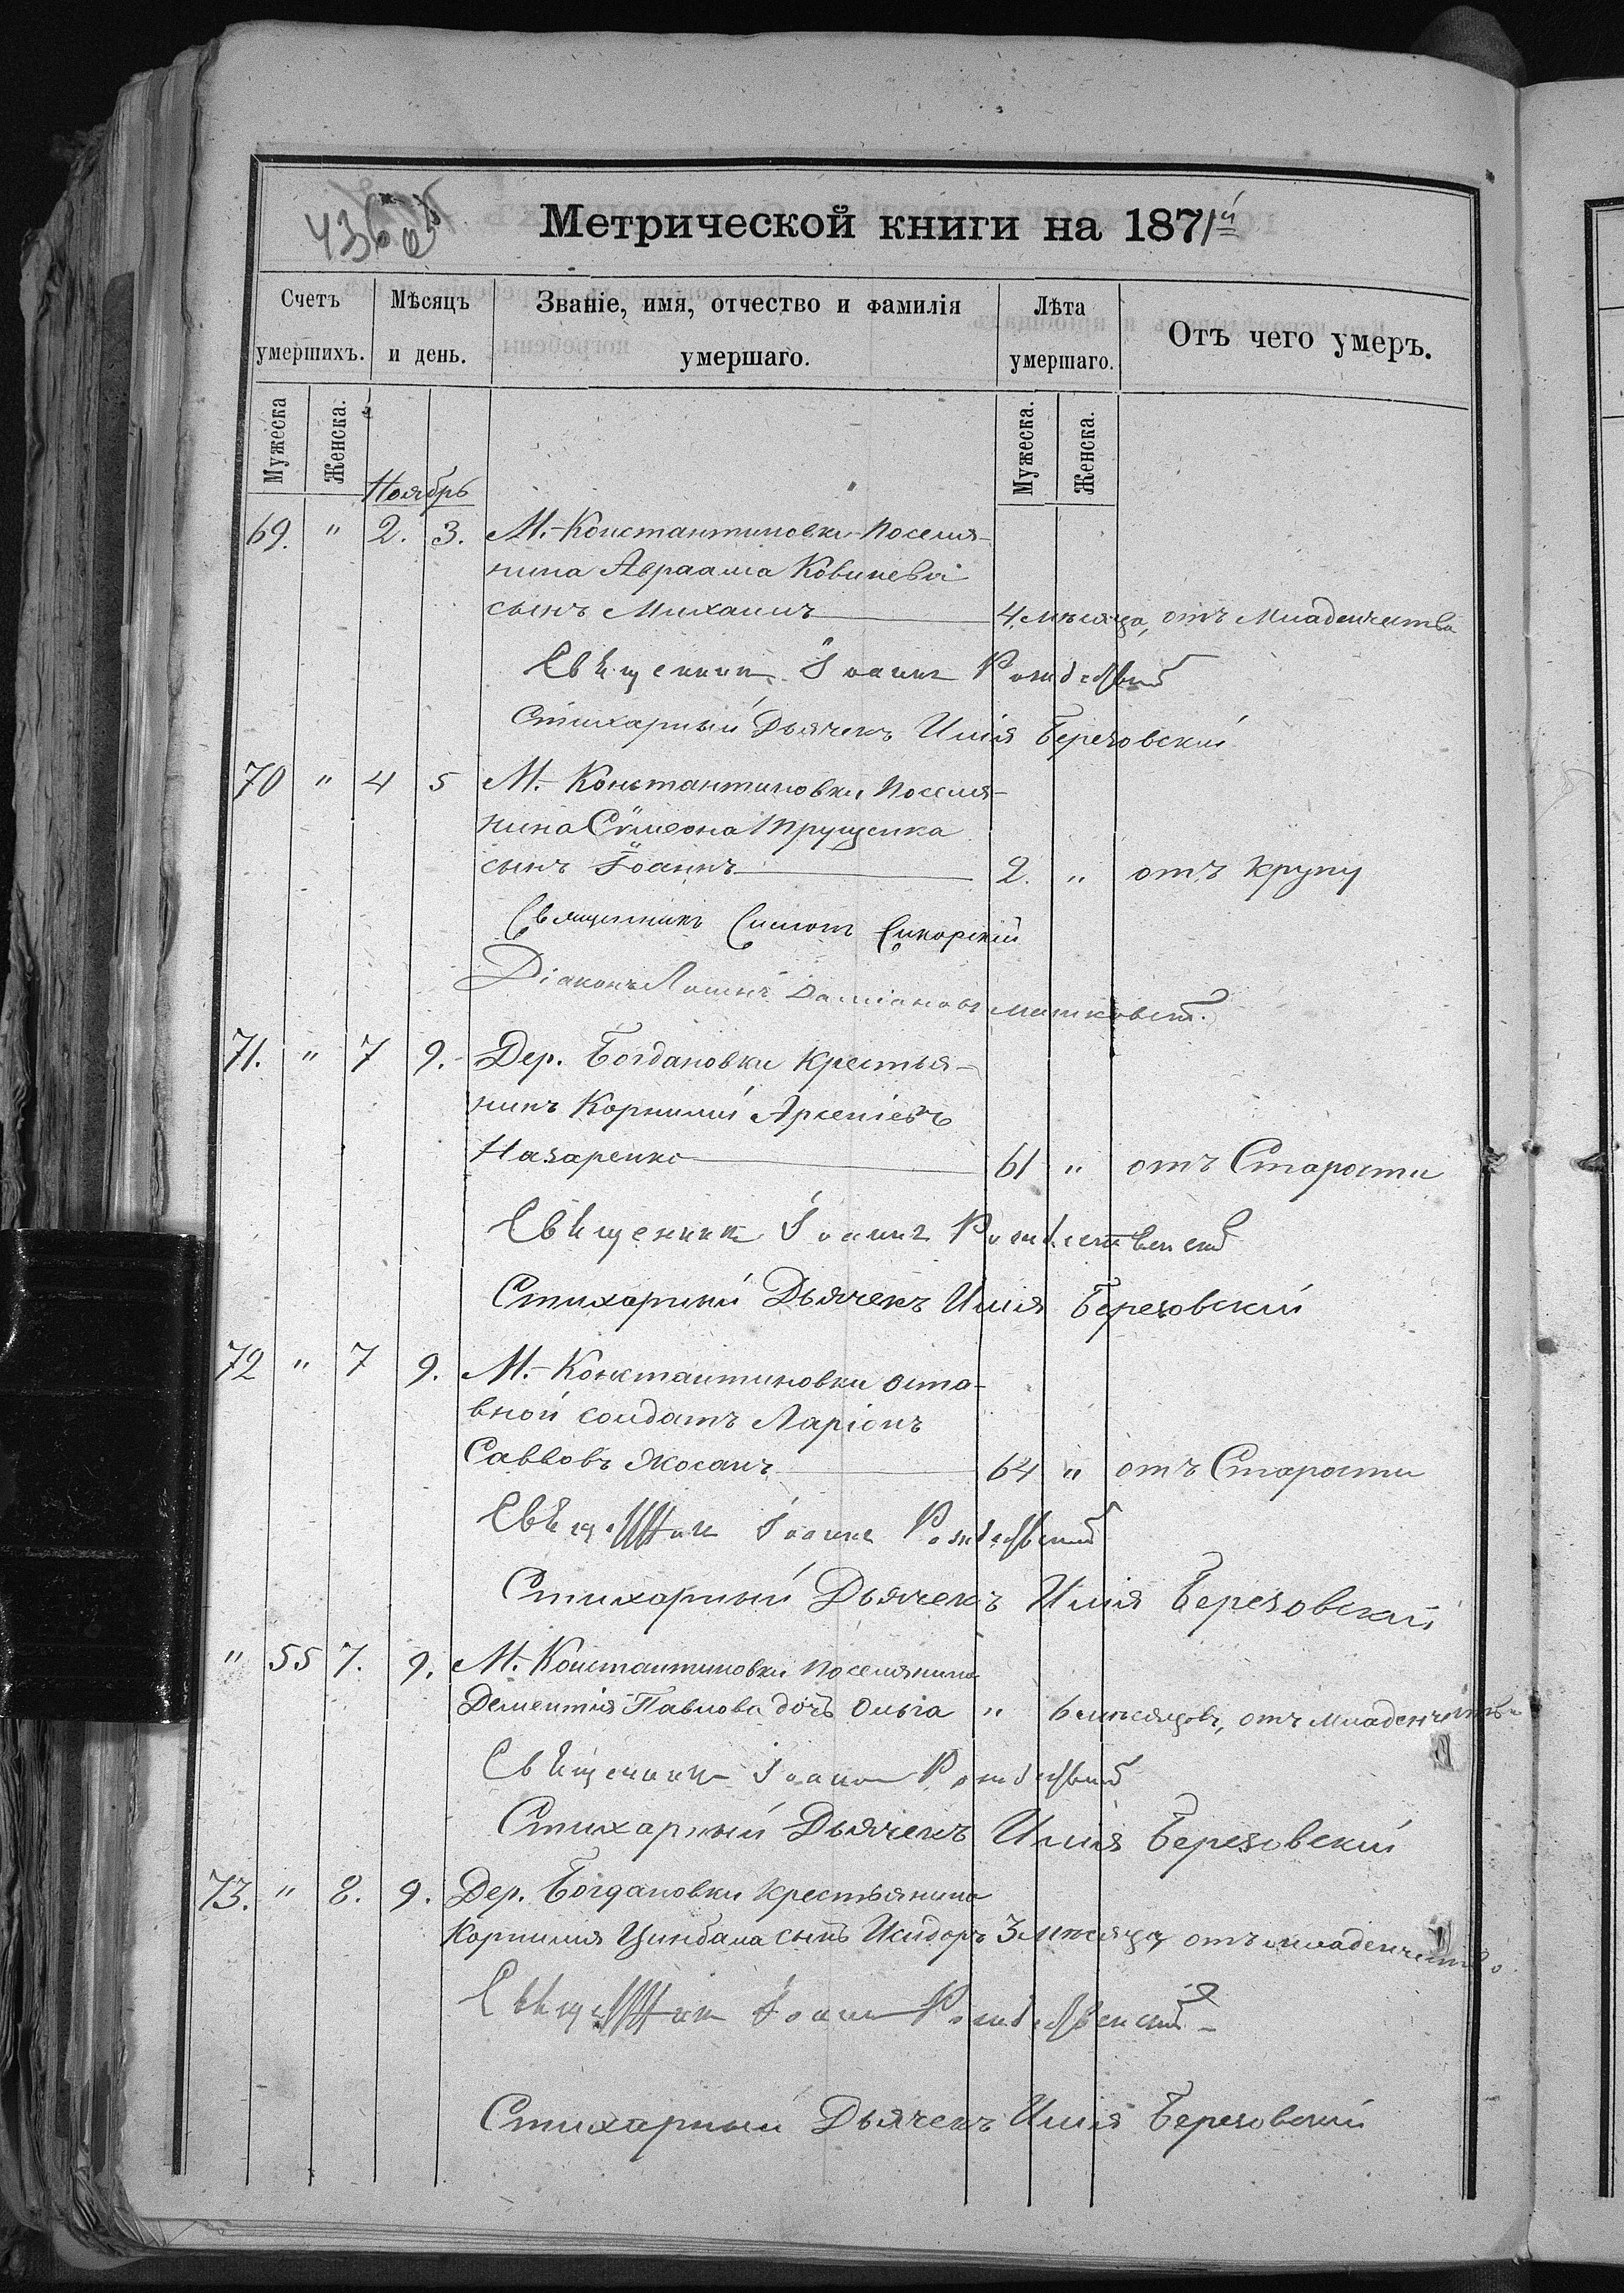 436
Метрической книги на 1871й
Счетъ умершихъ.
Мѣсяцъ и день.
Званіе, имя, отчество и фамилія умершаго.
Лѣта умершаго.
Отъ чего умеръ.
Мужеска
Женска.
Мужеска.
Женска.
Ноябрь
69. " 2. 3. М.-Константиновки поселя-
нина Авраама
сынъ Михаилъ 4 мѣсяца, отъ младенчества
Священникъ Іоаннъ
Стихарный Дьячекъ Илія Березовскій
70 " 4 5 М.-Константиновки поселя-
нина Сѵмеона
сынъ Іоаннъ 2. " отъ крупу
Священникъ Симонъ Сикорскій
Діаконъ
71. " 7 9. Дер. Богдановки крестья-
нинъ Корнилій Арсеніевъ
Назаренко 61 " отъ Старости
Священникъ Іоаннъ Рождественскій
Стихарный Дьячекъ Илія Березовскій
72 " 7 9. М.-Константиновки отста-
вной солдатъ Ларіонъ
Саввовъ 64 " отъ Старости
Священникъ Іоаннъ
Стихарный Дьячекъ Илія Березовскій
" 55 7. 9. М.-Константиновки поселянина
Дементія Павлова дочь Ольга " 6 мѣсяцовъ, отъ младенчества
Священникъ Іоаннъ
Стихарный Дьячекъ Илія Березовскій
73. " 8. 9. Дер. Богдановки крестьянина
Корнилія Цимбала сынъ Исидоръ 3 мѣсяца, отъ младенчества
Священникъ Іоаннъ Рождественскій
Стихарный Дьячекъ Илія Березовскій